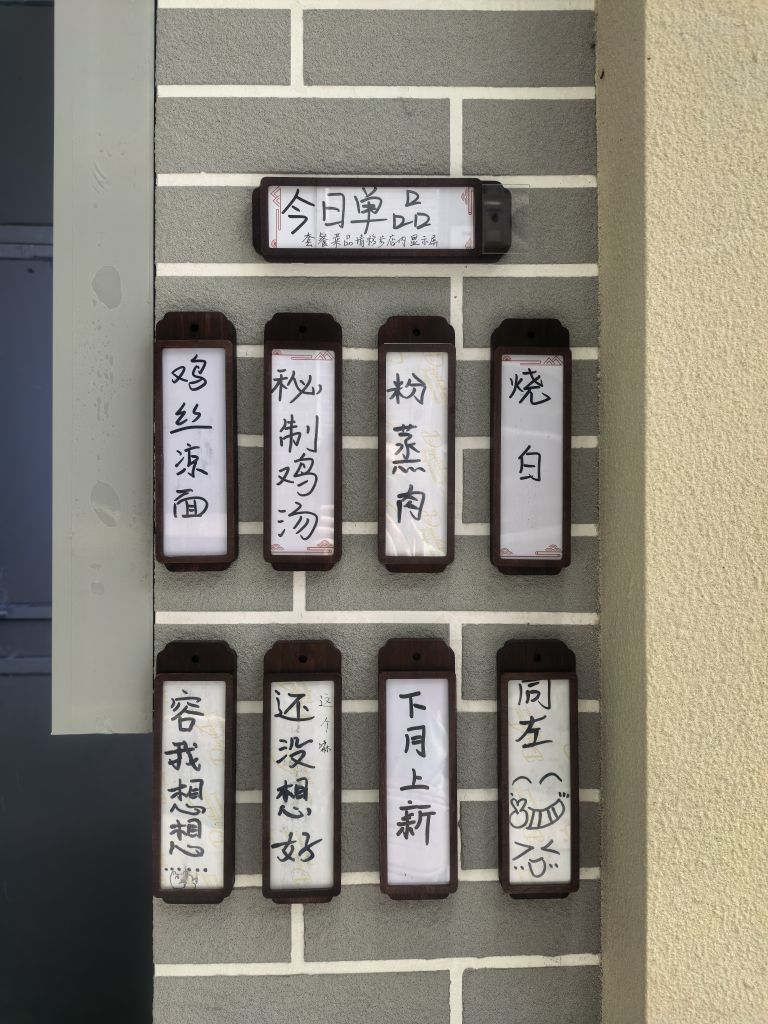 今日单品
套餐菜品请移步店内显示屏
鸡丝凉面
秘制鸡汤
粉蒸肉
烧白
容我想想……
这个嘛
还没想好
下月上新
同左